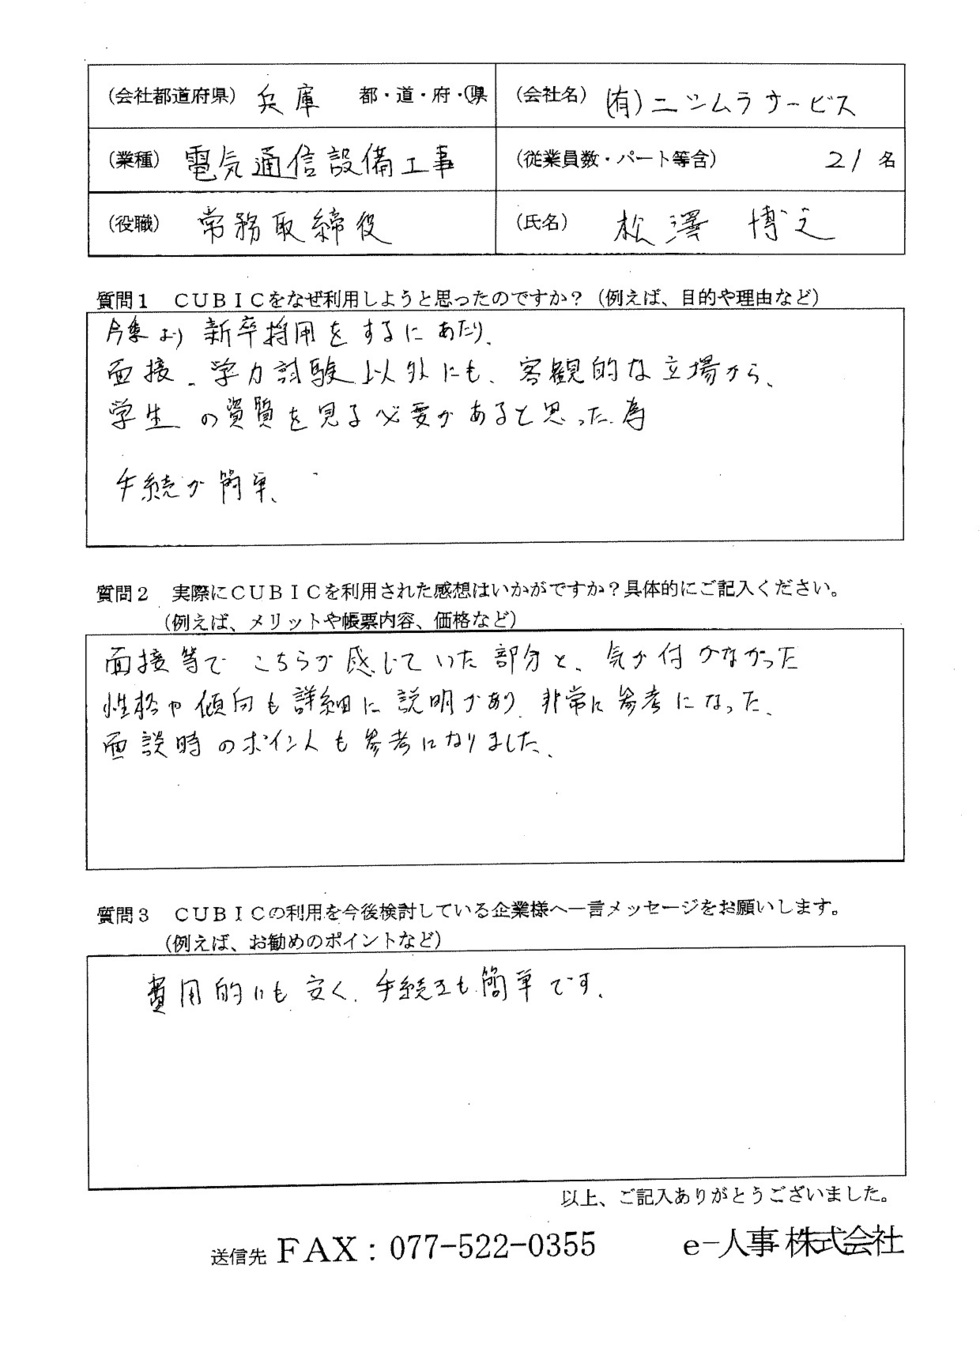 (会社都道府県) 兵庫 都・道・府・県
(会社名) (有)ニシムラサービス
(業種) 電気通信設備工事
(従業員数・パート等含) 21 名
(役職) 常務取締役
(氏名) 松澤 博之
質問1 CUBICをなぜ利用しようと思ったのですか?(例えば、目的や理由など)
より 新卒採用をするにあたり、
面接、学力試験以外にも、客観的な立場から、
学生の資質を見る必要があると思った為
手続が簡単、
質問2 実際にCUBICを利用された感想はいかがですか?具体的にご記入ください。
(例えば、メリットや帳票内容、価格など)
面接等で こちらが感じていた部分と、気が付かなかった
性格や傾向も詳細に説明があり 非常に参考になった、
面談時のポイントも参考になりました、
質問3 CUBICの利用を今後検討している企業様へ一言メッセージをお願いします。
(例えば、お勧めのポイントなど)
費用的にも安く、手続きも簡単です、
以上、ご記入ありがとうございました。
送信先 FAX:077-522-0355 e-人事株式会社